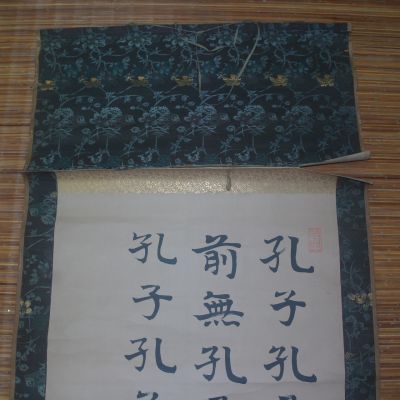 孔子孔
前無孔
孔子孔